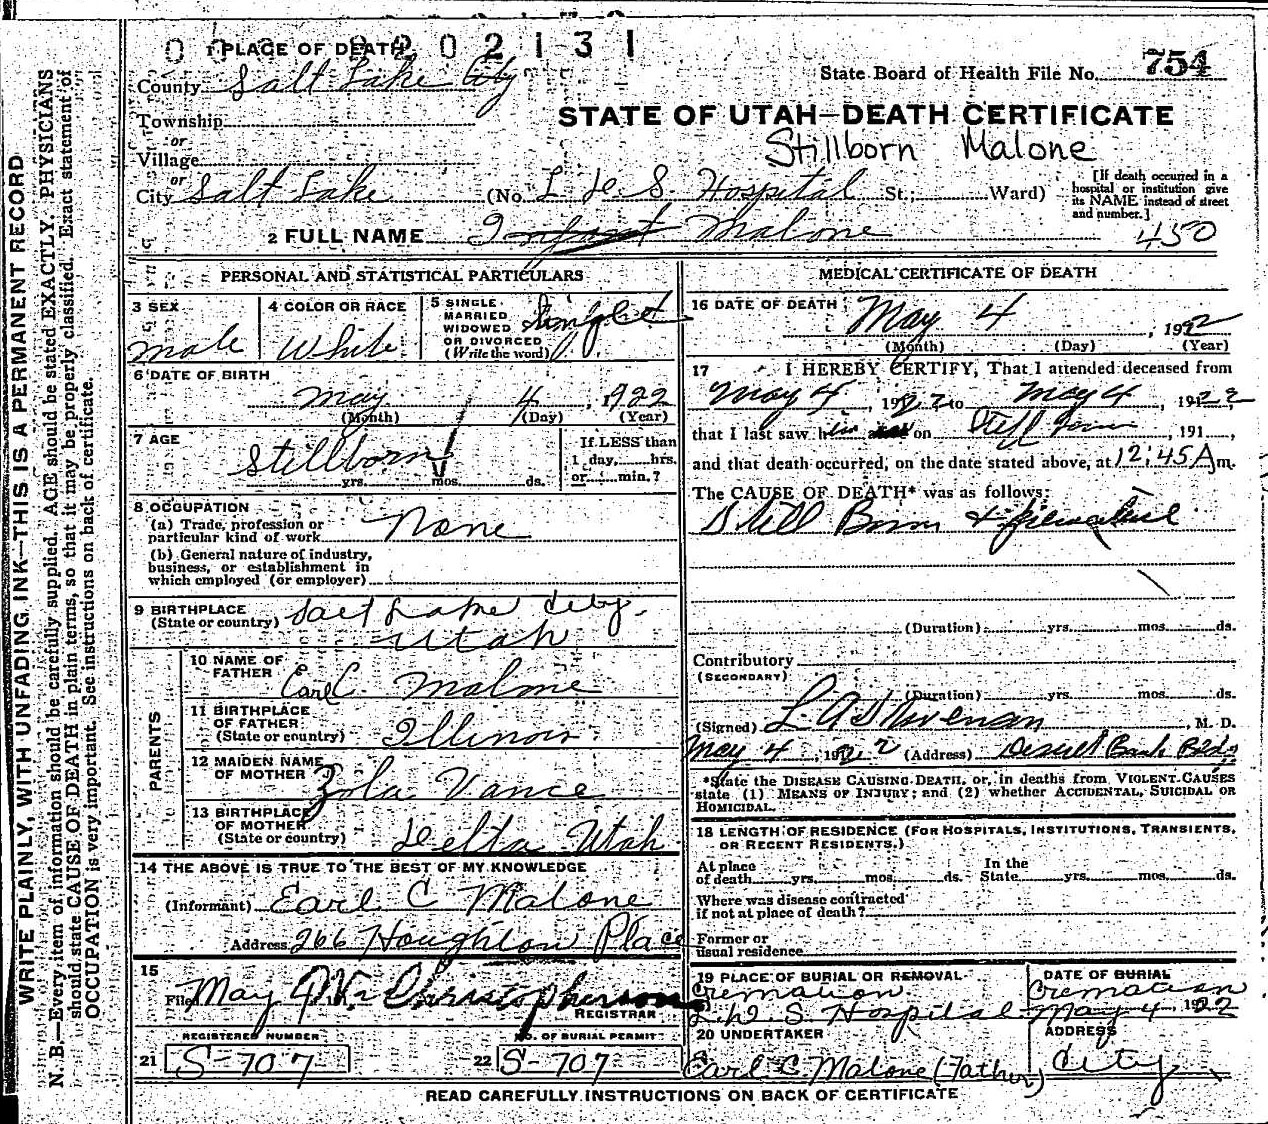 WRITE PLAINLY, WITH UNFADING INK—THIS IS A PERMANENT RECORD
N. B.—Every item of information should be carefully supplied. AGE should be stated EXACTLY. PHYSICIANS
should state CAUSE OF DEATH in plain terms, so that it may be properly classified. Exact statement of
OCCUPATION is very important. See instructions on back of certificate.
1 PLACE OF DEATH
202131
County Salt Lake City
State Board of Health File No. 754
Township
STATE OF UTAH—DEATH CERTIFICATE
or
Village
Stillborn Malone
or
City Salt Lake (No. L. D. S. Hospital St.; Ward)
[If death occurred in a
hospital or institution give
its NAME instead of street
and number.]
2 FULL NAME Infant Malone
450
PERSONAL AND STATISTICAL PARTICULARS
3 SEX
Male
4 COLOR OR RACE
White
5 SINGLE
MARRIED
WIDOWED
OR DIVORCED
(Write the word)
6 DATE OF BIRTH
May 4, 1922
(Month) (Day) (Year)
7 AGE
Stillborn
yrs. mos. ds.
If LESS than
1 day, hrs.
or min.?
8 OCCUPATION
(a) Trade, profession or
particular kind of work None
(b) General nature of industry,
business, or establishment in
which employed (or employer)
9 BIRTHPLACE
(State or country) Salt Lake City.
Utah
PARENTS
10 NAME OF
FATHER Earl C. Malone
11 BIRTHPLACE
OF FATHER
(State or country) Illinois
12 MAIDEN NAME
OF MOTHER Zola Vance
13 BIRTHPLACE
OF MOTHER
(State or country) Delta Utah
14 THE ABOVE IS TRUE TO THE BEST OF MY KNOWLEDGE
(Informant) Earl C Malone
Address 266 Houghton Place
15
Filed May 4 Christopherson
REGISTRAR
REGISTERED NUMBER
NO. OF BURIAL PERMIT
21 S-707
22 S-707
MEDICAL CERTIFICATE OF DEATH
16 DATE OF DEATH
May 4, 1922
(Month) (Day) (Year)
17 I HEREBY CERTIFY, That I attended deceased from
May 4, 1922 to May 4, 1922
that I last saw him on Still born, 191
and that death occurred, on the date stated above, at 12:45 A m.
The CAUSE OF DEATH* was as follows:
Still Born &
(Duration) yrs. mos. ds.
Contributory
(SECONDARY)
(Duration) yrs. mos. ds.
(Signed) L A Stevenson, M. D.
May 4, 1922 (Address) Deseret Bank Bldg
*State the DISEASE CAUSING DEATH, or, in deaths from VIOLENT CAUSES
state (1) MEANS OF INJURY; and (2) whether ACCIDENTAL, SUICIDAL OR
HOMICIDAL.
18 LENGTH OF RESIDENCE (FOR HOSPITALS, INSTITUTIONS, TRANSIENTS,
OR RECENT RESIDENTS.)
At place
of death yrs. mos. ds.
In the
State yrs. mos. ds.
Where was disease contracted
if not at place of death?
Former or
usual residence
19 PLACE OF BURIAL OR REMOVAL
Cremation
L. D. S. Hospital
DATE OF BURIAL
Cremation
May 4 1922
20 UNDERTAKER
Earl C. Malone (Father)
ADDRESS
City
READ CAREFULLY INSTRUCTIONS ON BACK OF CERTIFICATE